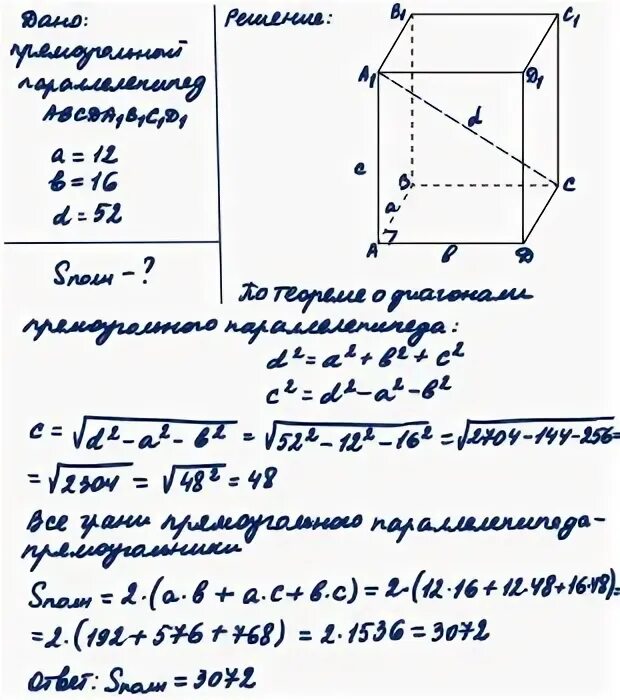 Дано:
прямоугольный
параллелепипед
ABCDA₁B₁C₁D₁
a = 12
в = 16
d = 52
Sполн - ?
Решение:
B₁
C₁
A₁
D₁
d
c
B
C
a
A
в
D
По теореме о диагонали
прямоугольного параллелепипеда:
d² = a² + в² + c²
c² = d² - a² - в²
c = √(d² - a² - в²) = √(52² - 12² - 16²) = √(2704 - 144 - 256) =
= √2304 = √48² = 48
Все грани прямоугольного параллелепипеда-
прямоугольники
Sполн = 2·(a·в + a·c + в·c) = 2·(12·16 + 12·48 + 16·48) =
= 2·(192 + 576 + 768) = 2·1536 = 3072
Ответ: Sполн = 3072